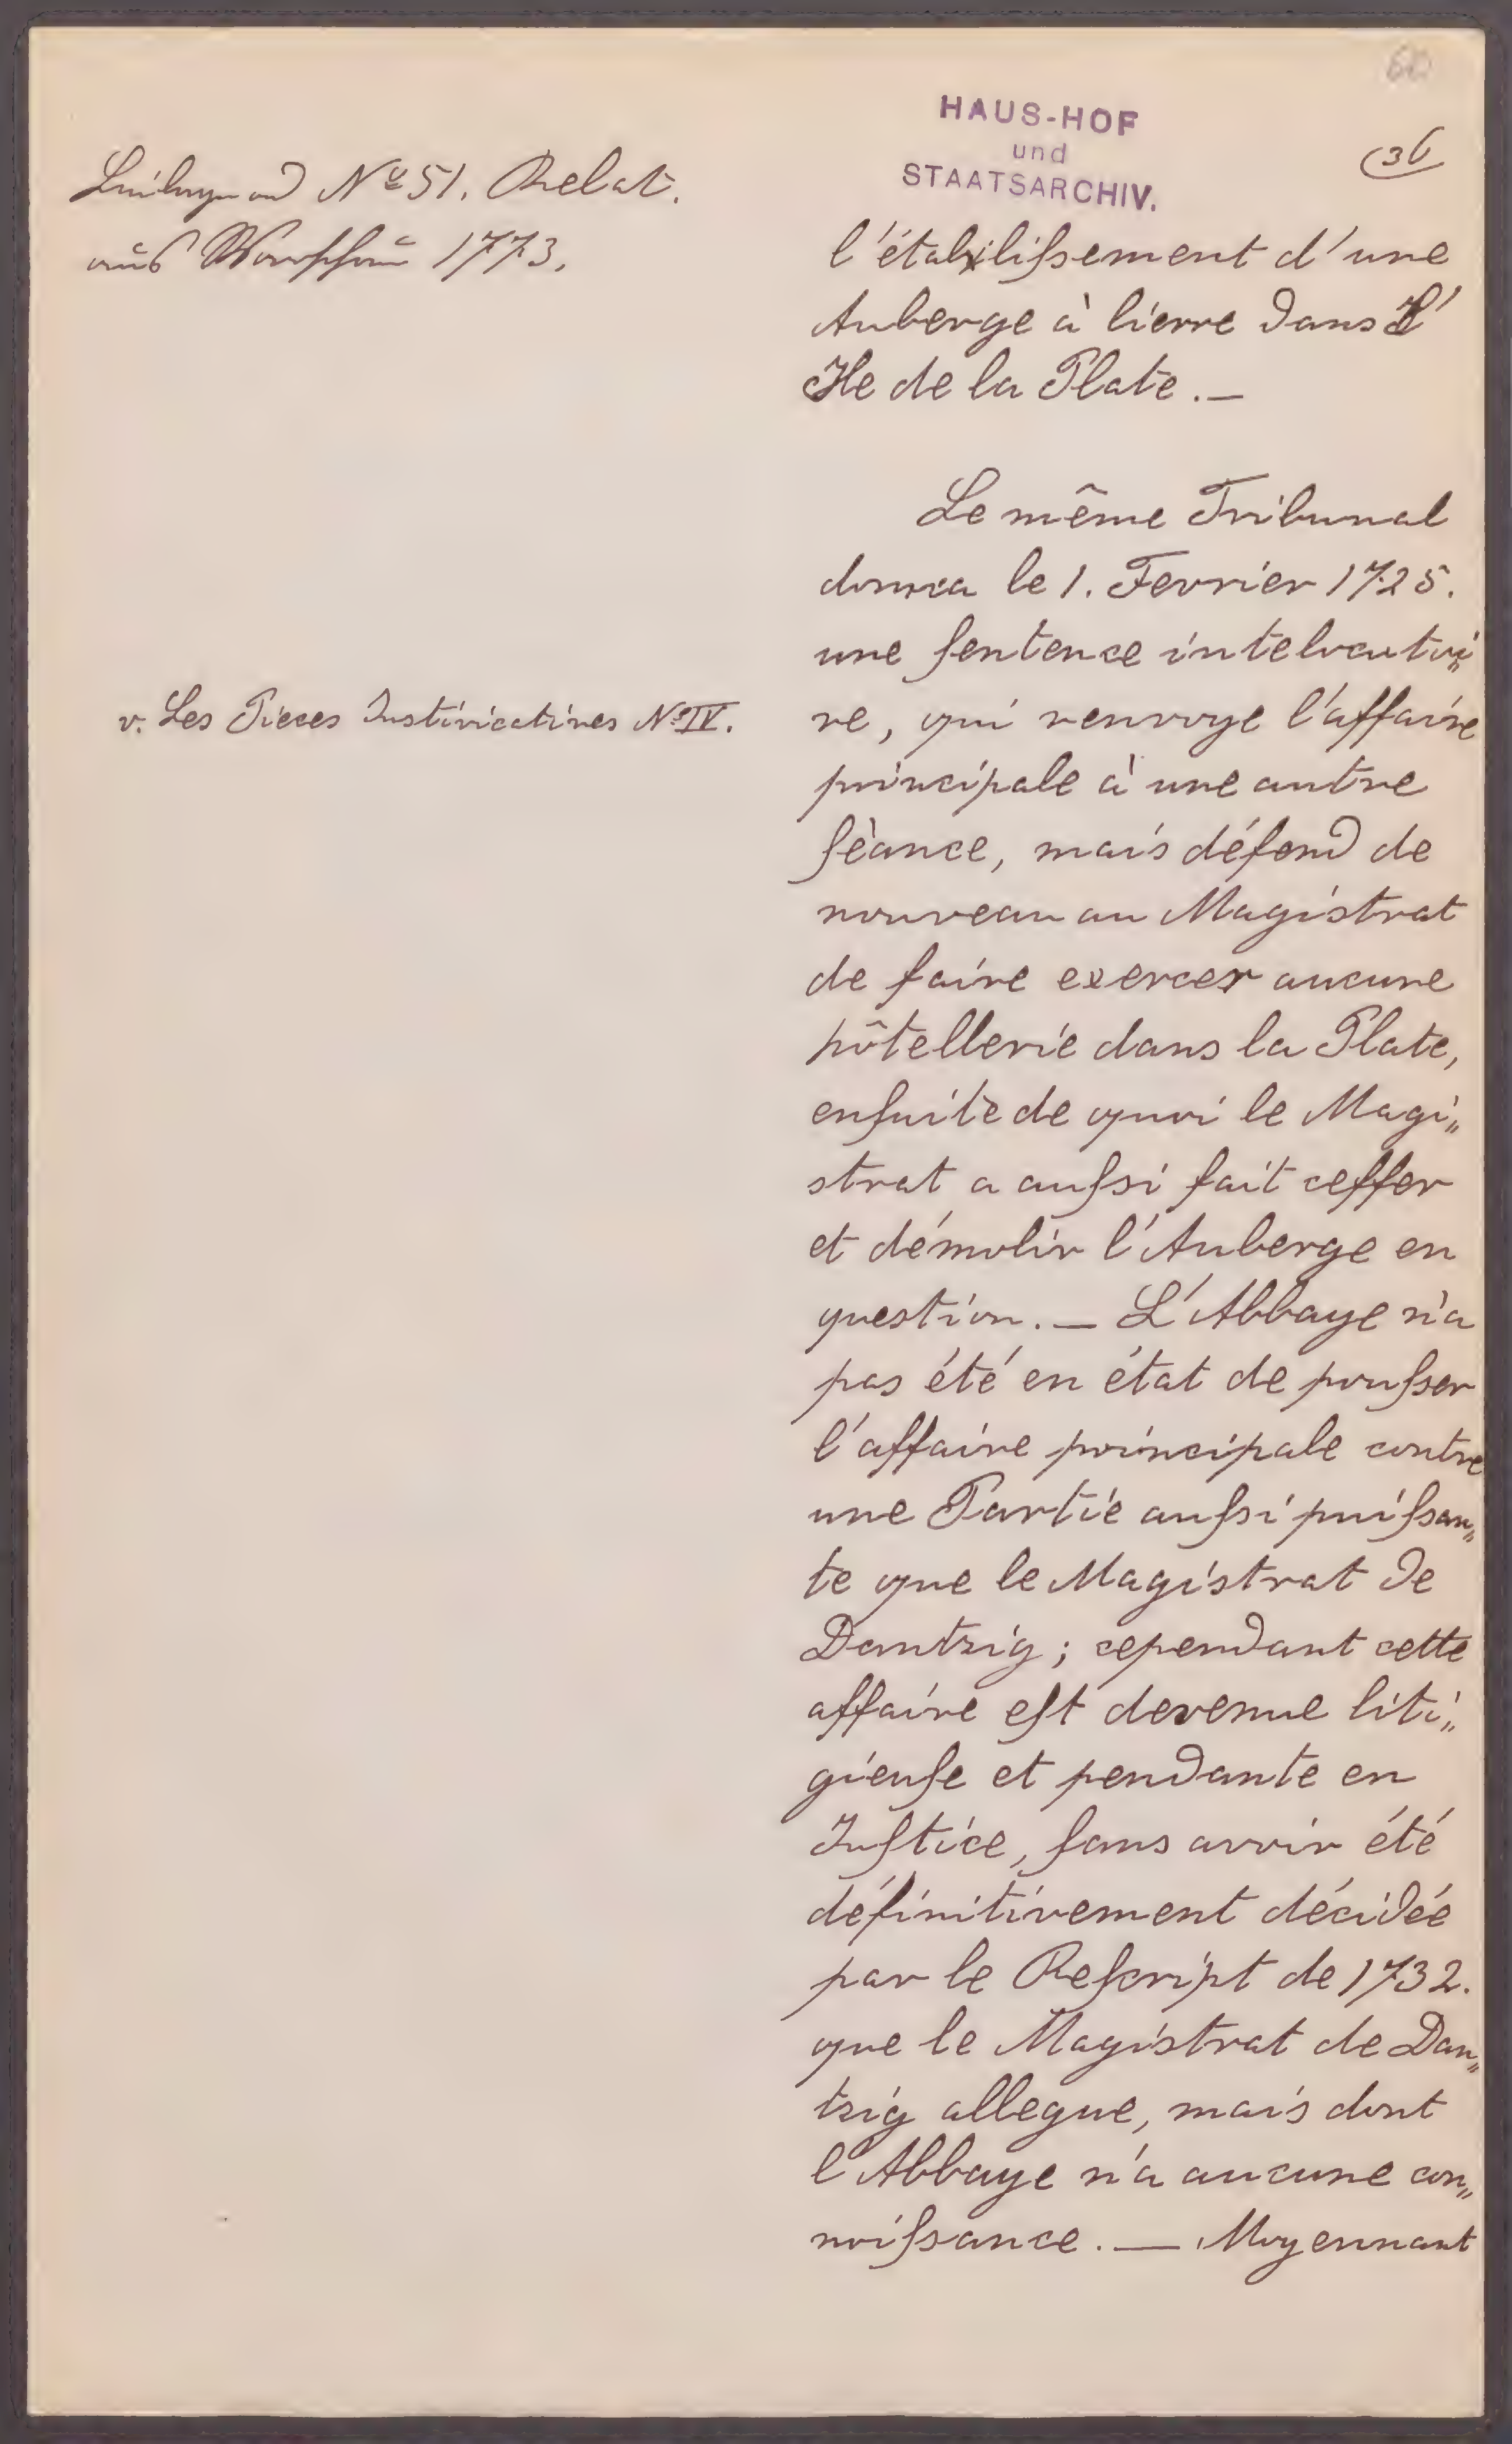 60
HAUS-HOF
und
STAATSARCHIV.
36
Beilage ad No 51. Relat.
aus Warschau 1773.
l'établiſsement d'une
Auberge à bierre dans L'
Ile de la Plate. —
Le même Tribunal
donna le 1. Fevrier 1725.
une ſentence intelocutoi„
re, qui renvoye l'affaire
v. Les Pieces Justivicatives No IV.
principale à une autre
ſèance, mais défend de
nouveau au Magistrat
de faire exercer aucune
hôtellerie dans la Plate,
enſuite de quoi le Magi„
strat a auſsi fait ceſſer
et démolir l'Auberge en
question. — L'Abbaye n'a
pas été en état de pouſser
l'affaire principale contre
une Partie auſsi puiſsan„
te que le Magistrat de
Dantzig; cependant cette
affaire eſt devenue liti„
gieuſe et pendante en
Juſtice, ſans avoir été
définitivement décidée
par le Reſcript de 1732.
que le Magistrat de Dan„
tzig allegue, mais dont
l'Abbaye n'a aucune con„
noiſsance. — Moyennant